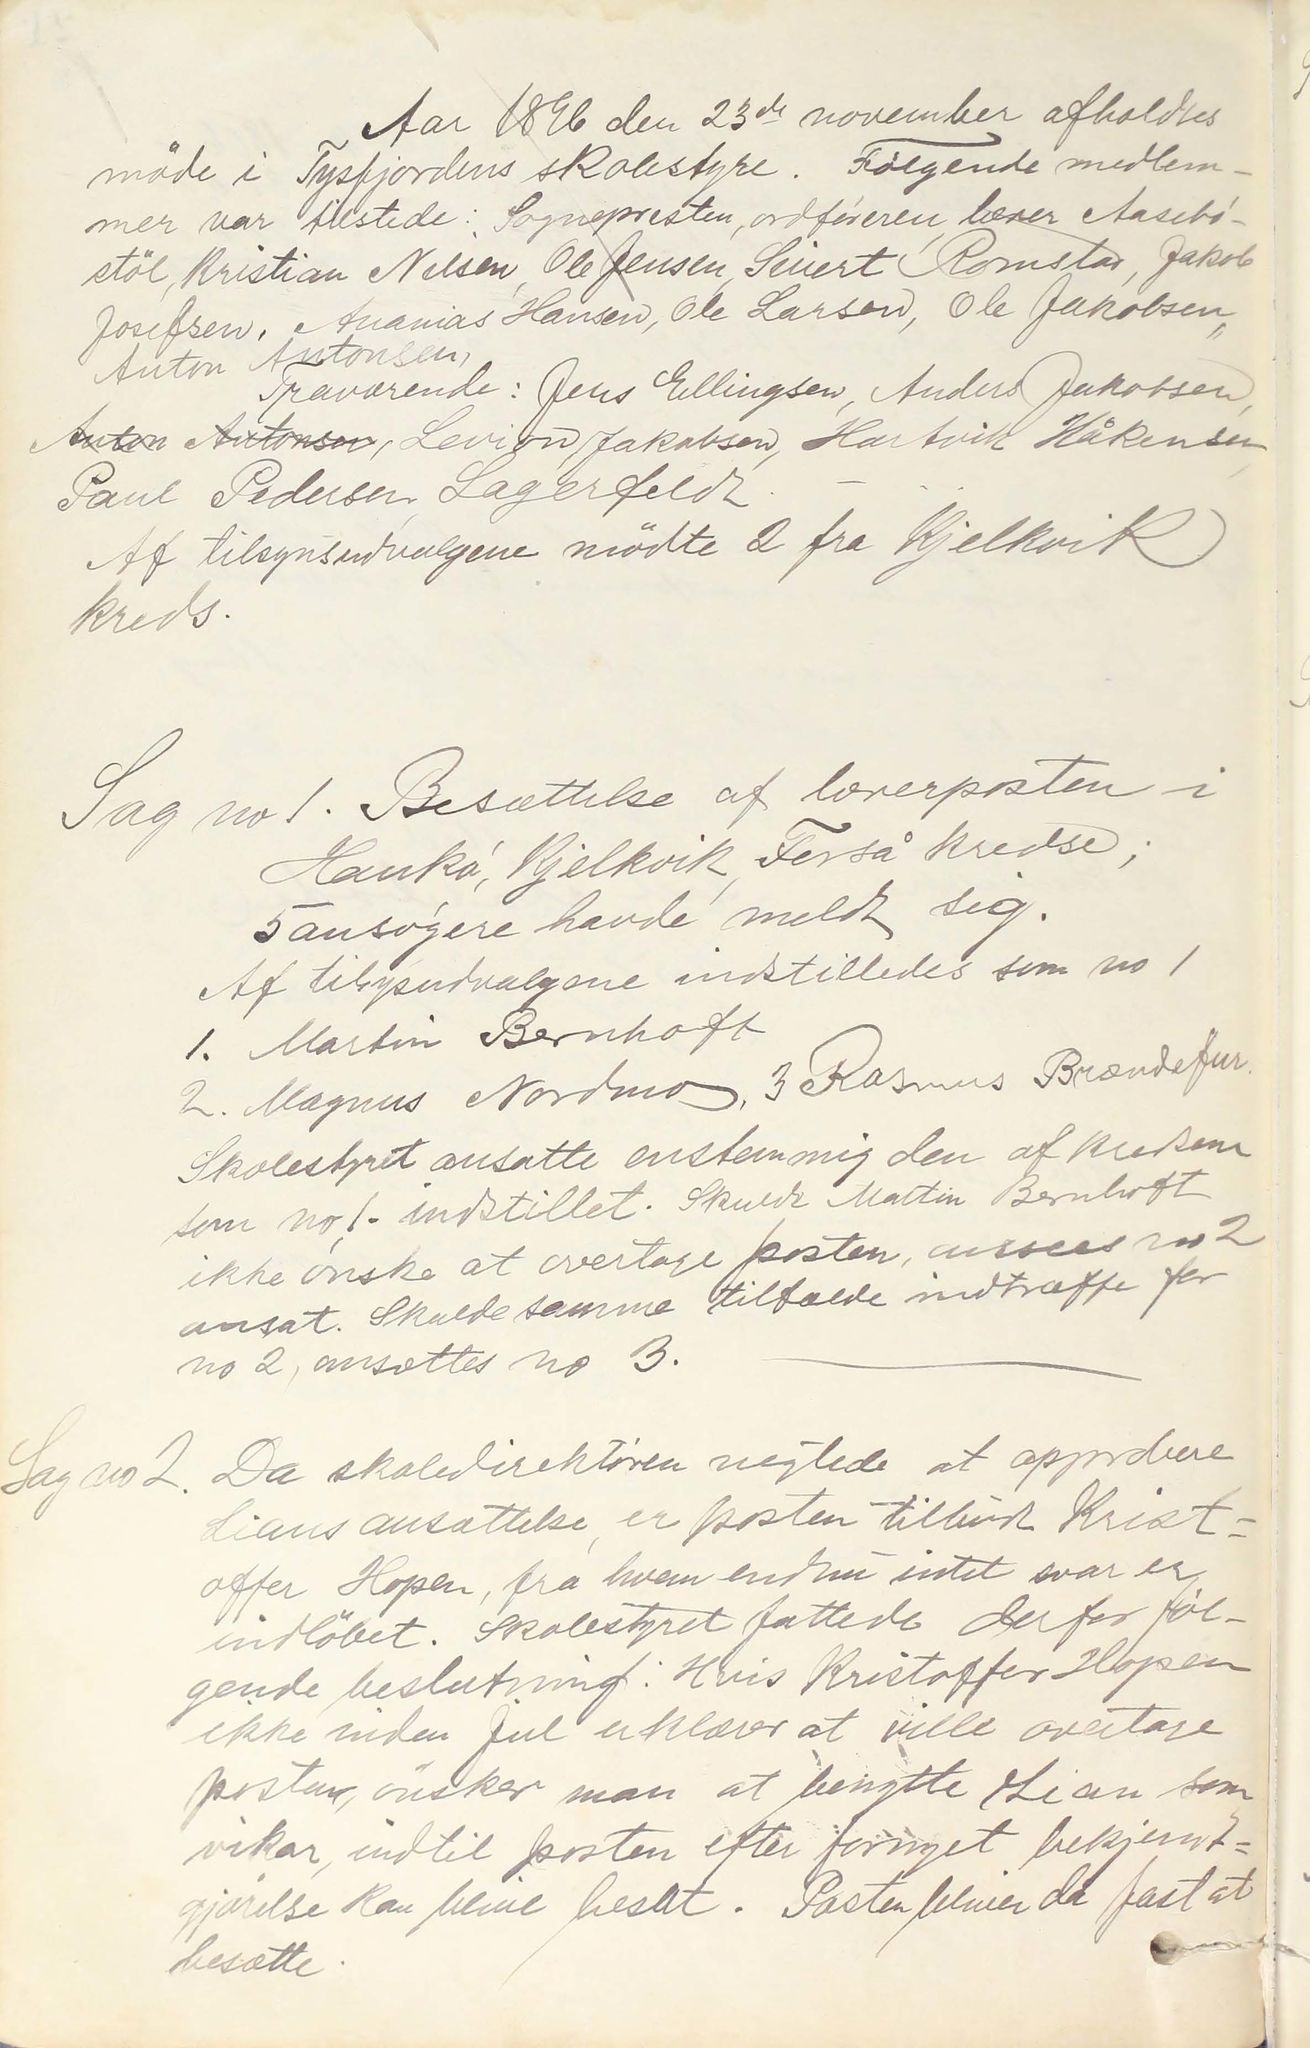 Aar 1896 den 23de november afholdtes
möde i Tysfjordens skolestyre. Følgende medlem-
mer var tilstede: Sognepresten, ordføreren, lærer Aasebö-
stöl, Kristian Nilsen, Ole Jensen, Sivert Romstad, Jakob
Josefsen, Ananias Hansen, Ole Larsen, Ole Jakobsen,
Anton Antonsen,
Fraværende: Jens Ellingsen, Anders Jakobsen,
Anton Antonsen, Levion Jakobsen, Hartvik Håkensen,
Paul Pedersen, Lagerfeldt. —
Af tilsynsudvalgene mödte 2 fra Kjelkvik
kreds.
Sag no 1. Besættelse af lærerposten i
Haukö, Kjelkvik, Forså kredse;
5 ansögere havde meldt sig.
Af tilsynsudvalgene indstilledes som no 1
1. Martin Bernhoft
2. Magnus Nordmo, 3 Rasmus Brændefur.
Skolestyret ansatte enstemmig den af kredsene
som no 1. indstillet. Skulde Martin Bernhoft
ikke önske at overtage posten, ansees no 2
ansat. Skulde samme tilfælde indtræffe for
no 2, ansættes no 3.
Sag no 2. Da skoledirektören neglede at approbere
Lians ansættelse, er posten tilbudt Krist=
offer Hopen, fra hvem endnu intet svar er
indlöbet. Skolestyret fattede derfor föl-
gende beslutning: Hvis Kristoffer Hopen
ikke inden jul erklærer at ville overtage
posten, önsker man at benytte Lian som
vikar, indtil posten efter fornyet bekjendt=
gjörelse kan blive besat. Posten bliver da fast at
besætte.